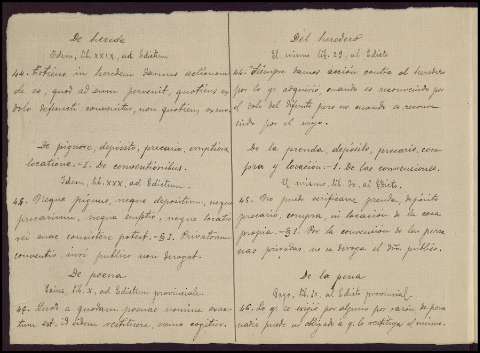 De herede
Idem, lib. XXIX, ad Edictum
44. Toties in heredem damus actionem
de eo, quod ad eum pervenit, quotiens ex
dolo defuncti convenitur, non quotiens ex suo
De pignore, depósito, precario, emptione
locatione.-§. De conventionibus.
Idem, lib. XXX, ad Edictum.
45. Neque pignus, neque depositum, neque
precarium, neque emptio, neque locatio
rei suae consistere potest.-§ 1. Privatorum
conventio iuri publico non derogat.
De poena
Gaius, lib. X, ad Edictum provinciale
46. Quod a quodam poenae nomine exac-
tum est, id idem restituere, nemo cogitur.
Del heredero
El mismo lib. 29, al Edicto
44. Siempre damos acción contra el heredero
por lo q. adquirió, cuando es reconvenido por
el dolo del difunto pero no cuando es reconve-
nido por el suyo.
De la prenda, depósito, precario, com-
pra y locación.-§. De las convenciones.
El mismo lib. 30, al Edicto.
45. No puede verificarse prenda, depósito
precario, compra, ni locación de la cosa
propia.-§ 1. Por la convención de las perso-
nas privadas, no se deroga el dro. público.
De la pena
Gayo, lib. 10, al Edicto provincial.
46. Lo q. se exigió por alguno por razón de pena
nadie puede ser obligado a q. lo restituya al mismo.